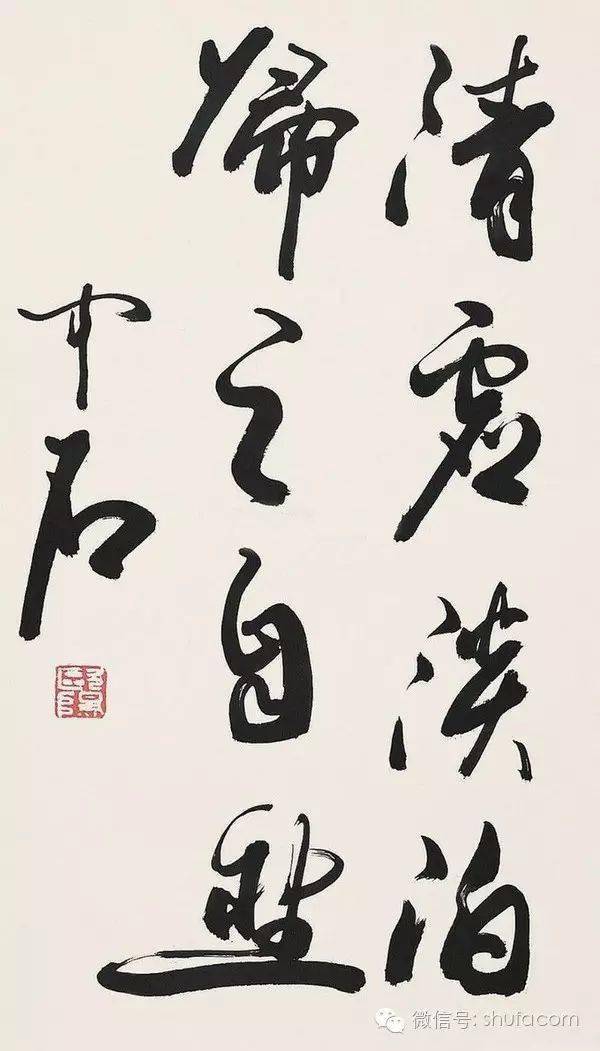 清虚淡泊
歸之自然
中石
微信号: shufacom